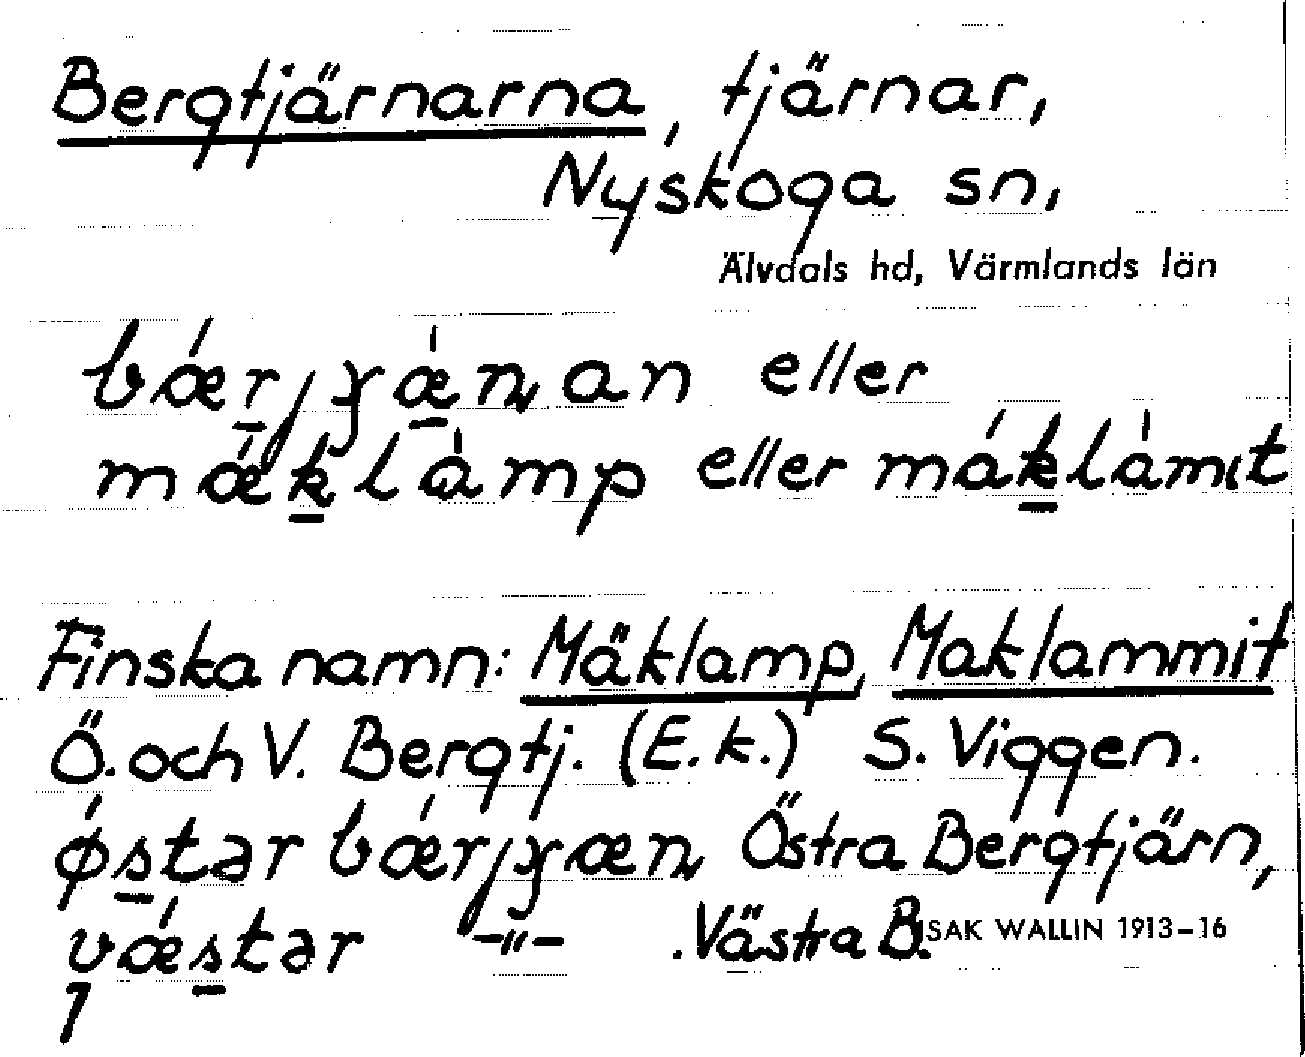 Bergtjärnarna, tjärnar,
Nyskoga sn,
Älvdals hd, Värmlands län
bǽr̲jɣæ̲̀n̡an eller
mǽk̲làmp eller mák̲làmıt
Finska namn: Mäklamp, Maklammit
Ö. och V. Bergtj. (E.k.) S. Viggen.
ǿs̲tər bǽrjɣæn̡ Östra Bergtjärn,
vǽs̲tər –"– . Västra B.
SAK WALLIN 1913–16
1